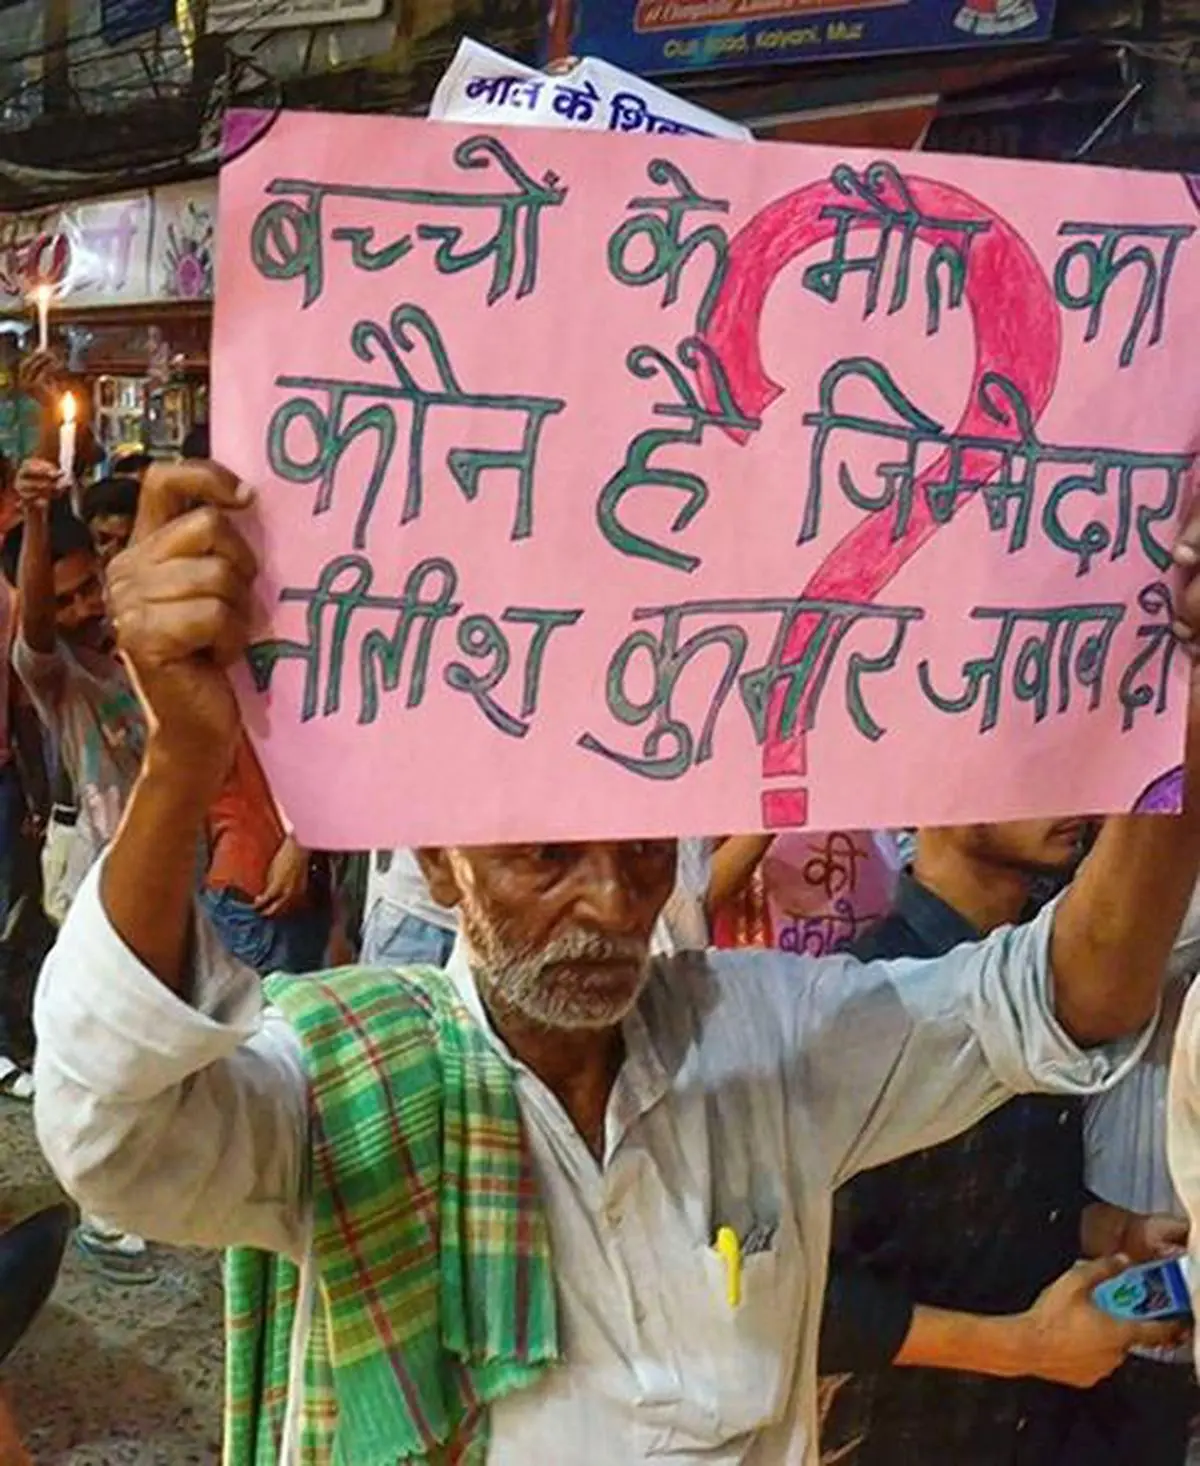 Club Road, Kalyani, Muz
मौत के
बच्चों के मौत का
कौन है जिम्मेदार
नीतीश कुमार जवाब दो
की